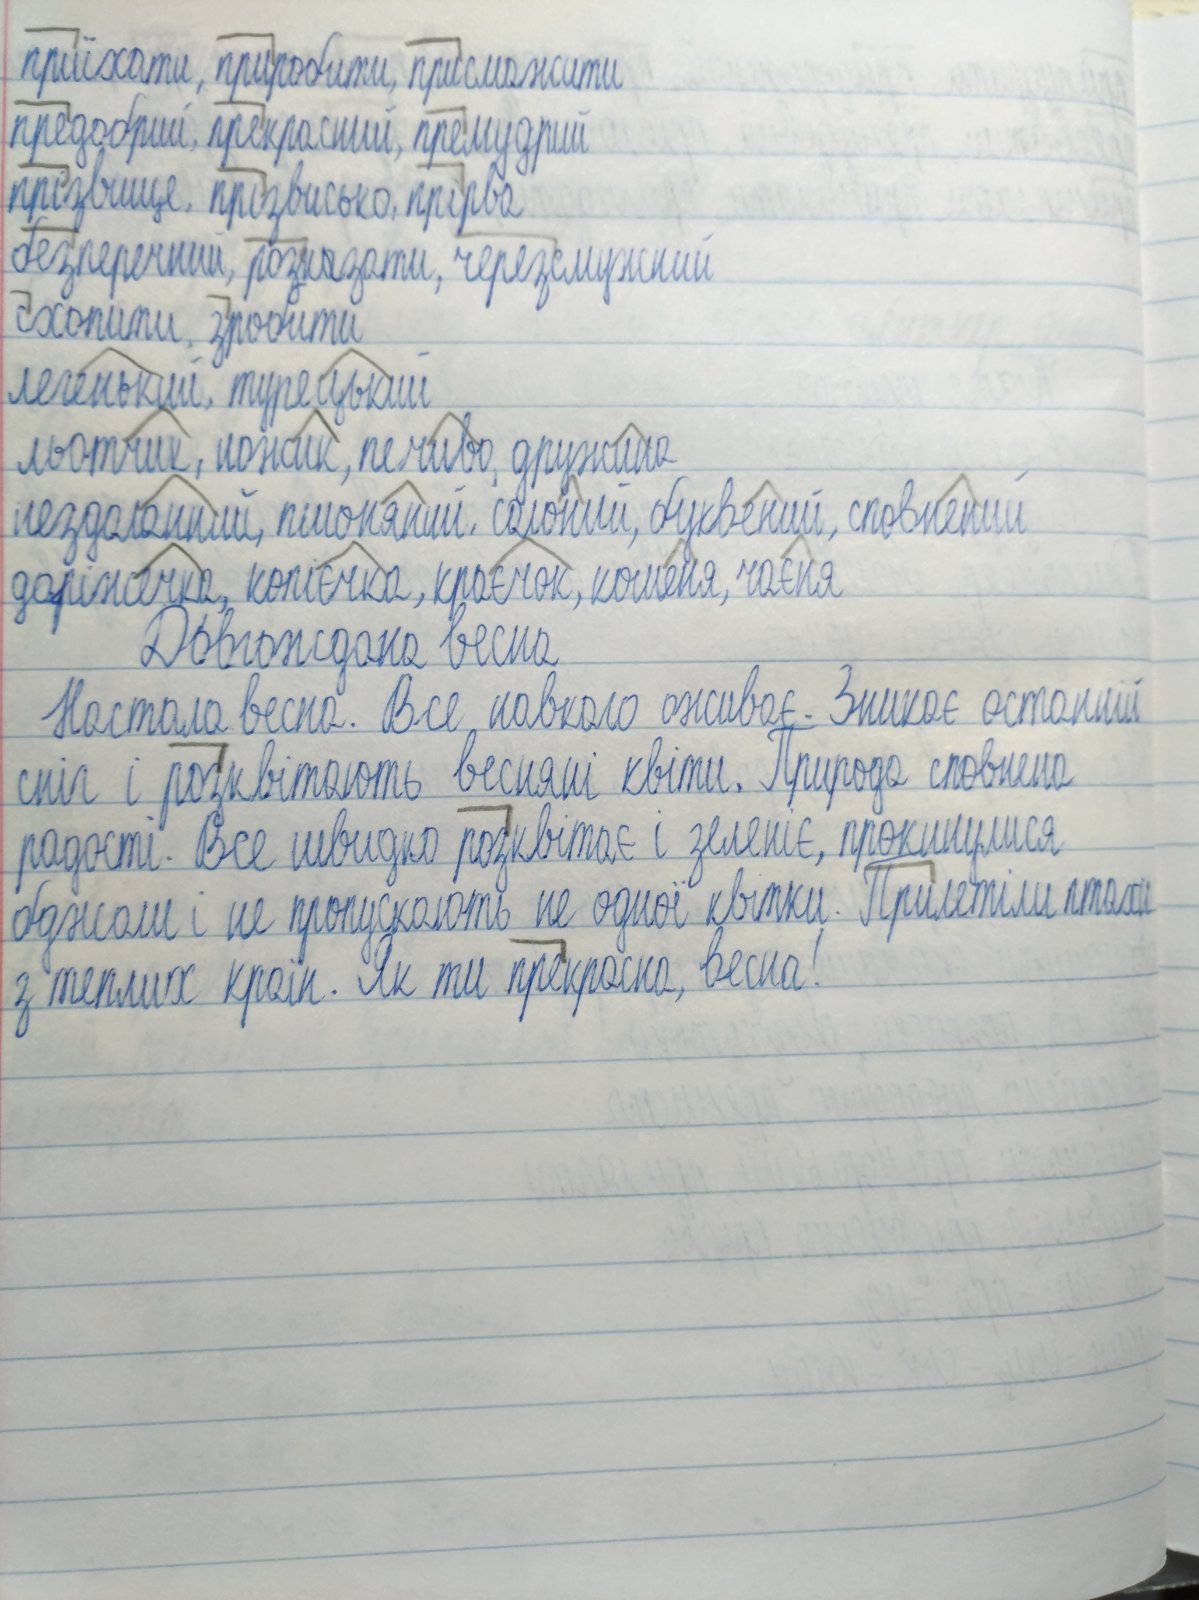 приїхати, приробити, присмажити
предобрий, прекрасний, премудрий
прізвище, прізвисько, прірва
безперечний, розказати, черезсмужний
схопити, зробити
легенький, турецький
льотчик, ножик, печиво, дружина
нездоланний, пшоняний, солоний, буквений, сповнений
доріжечка, копієчка, краєчок, кошеня, чаєня
Довгождана весна
Настала весна. Все навколо оживає. Зникає останній
сніг і розквітають весняні квіти. Природа сповнена
радості. Все швидко розквітає і зеленіє, прокинулися
бджоли і не пропускають не одної квітки. Прилетіли птахи
з теплих країн. Як ти прекрасна, весна!